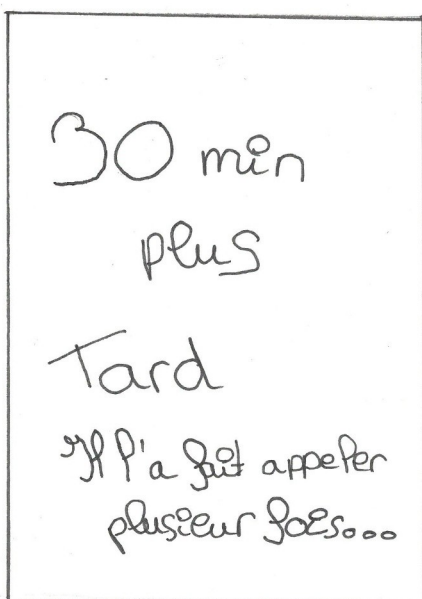 30 min
plus
Tard
Il l'a fait appeler
plusieur fois...